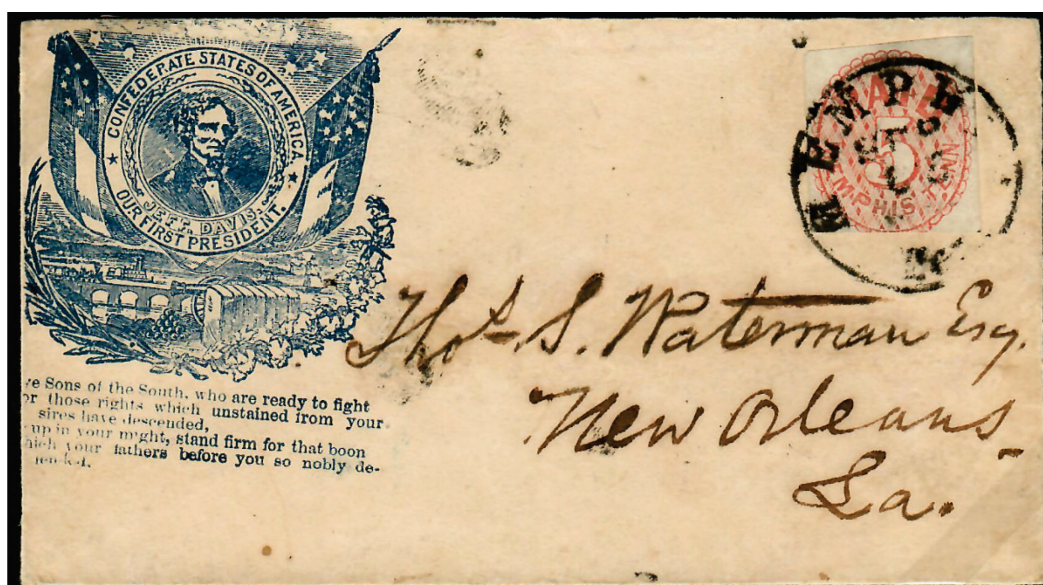 CONFEDERATE STATES OF AMERICA.
JEFF. DAVIS.
OUR FIRST PRESIDENT.
ye Sons of the South, who are ready to fight
or those rights which unstained from your
sires have descended,
up in your might, stand firm for that boon
hich your fathers before you so nobly de-
PAID
5
MPHIS, TENN
MEMPH
Thos. S. Waterman Esq.
New Orleans
La.